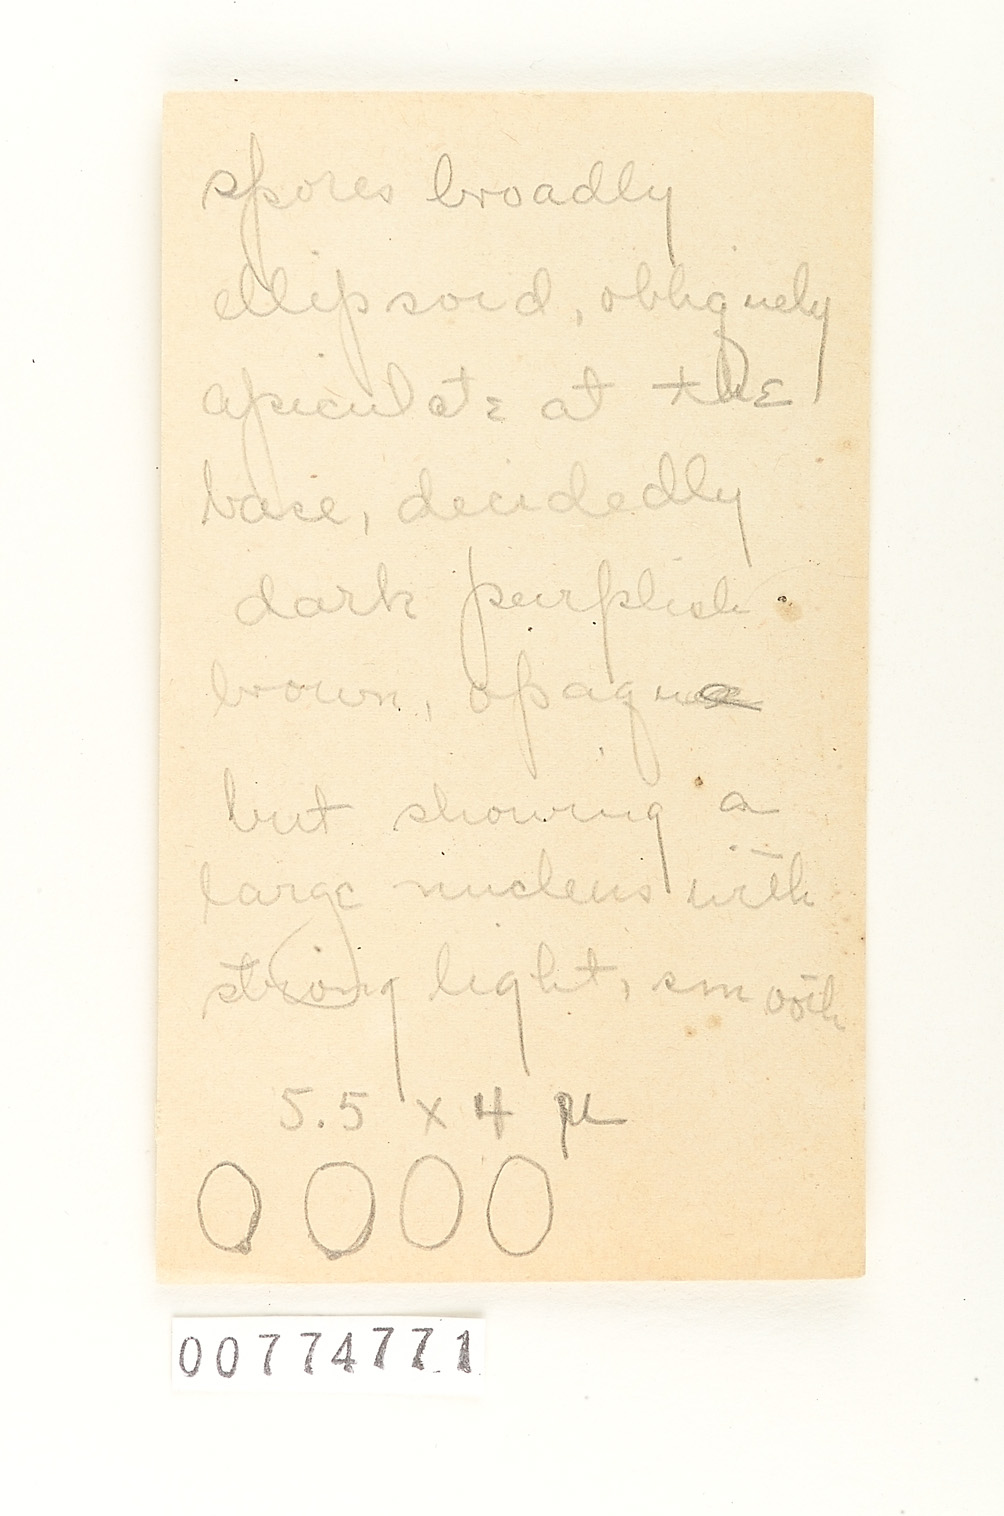 spores broadly
ellipsoid, obliquely
apiculate at the
base, decidedly
dark purplish
brown, opaque
but showing a
large nucleus with
strong light, smooth
5.5 x 4 µ
00774771